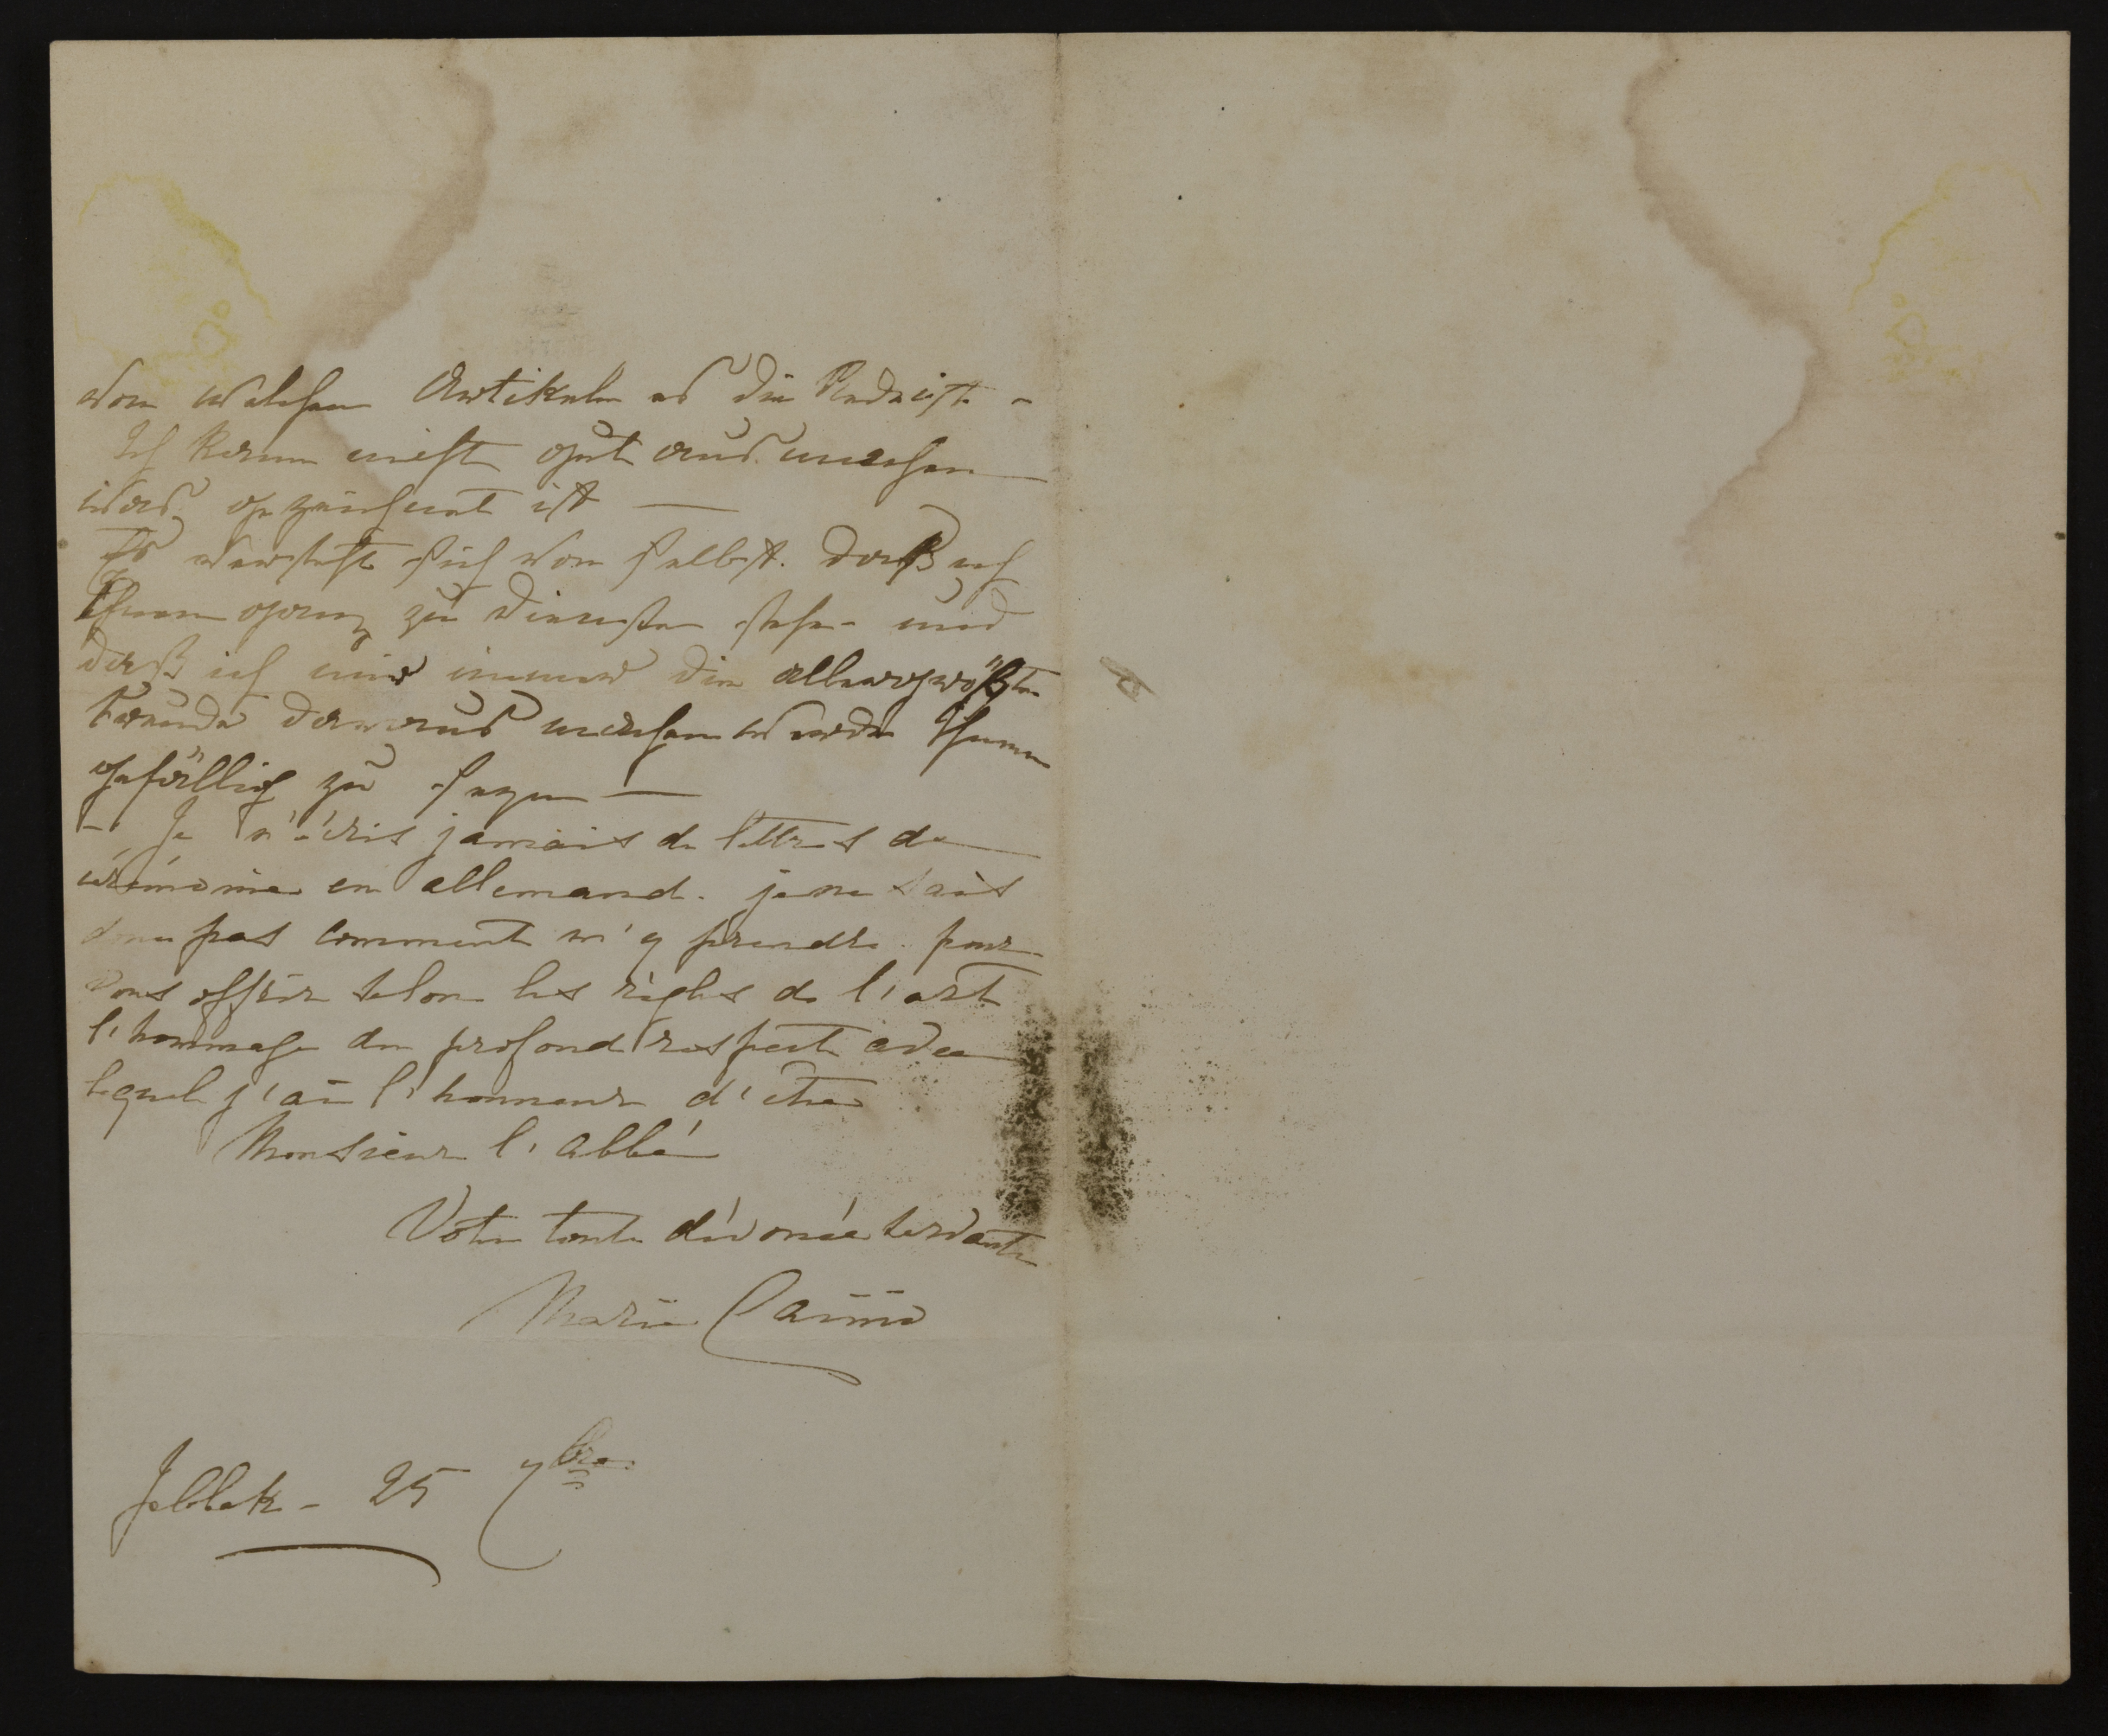 von welchen Artikeln es die Rede ist -
Ich kann nicht gut ausmachen
was gezeichnet ist —
Es versteht sich von selbst. daß ich
Ihnen ganz zu Diensten stehe - und
daß ich mir immer die allergrößte
Freude daraus machen werde Ihnen
gefällig zu seyn —
- Je n'écris jamais de lettres de
cérémonie en allemand. je ne sais
donc pas comment m'y prendre pour
vous offrir selon les règles de l'art
l'hommage du profond respect avec
lequel j'ai l'honneur d'être
Monsieur l'abbé
Votre toute dévouée servante
Marie
- 25 7bre